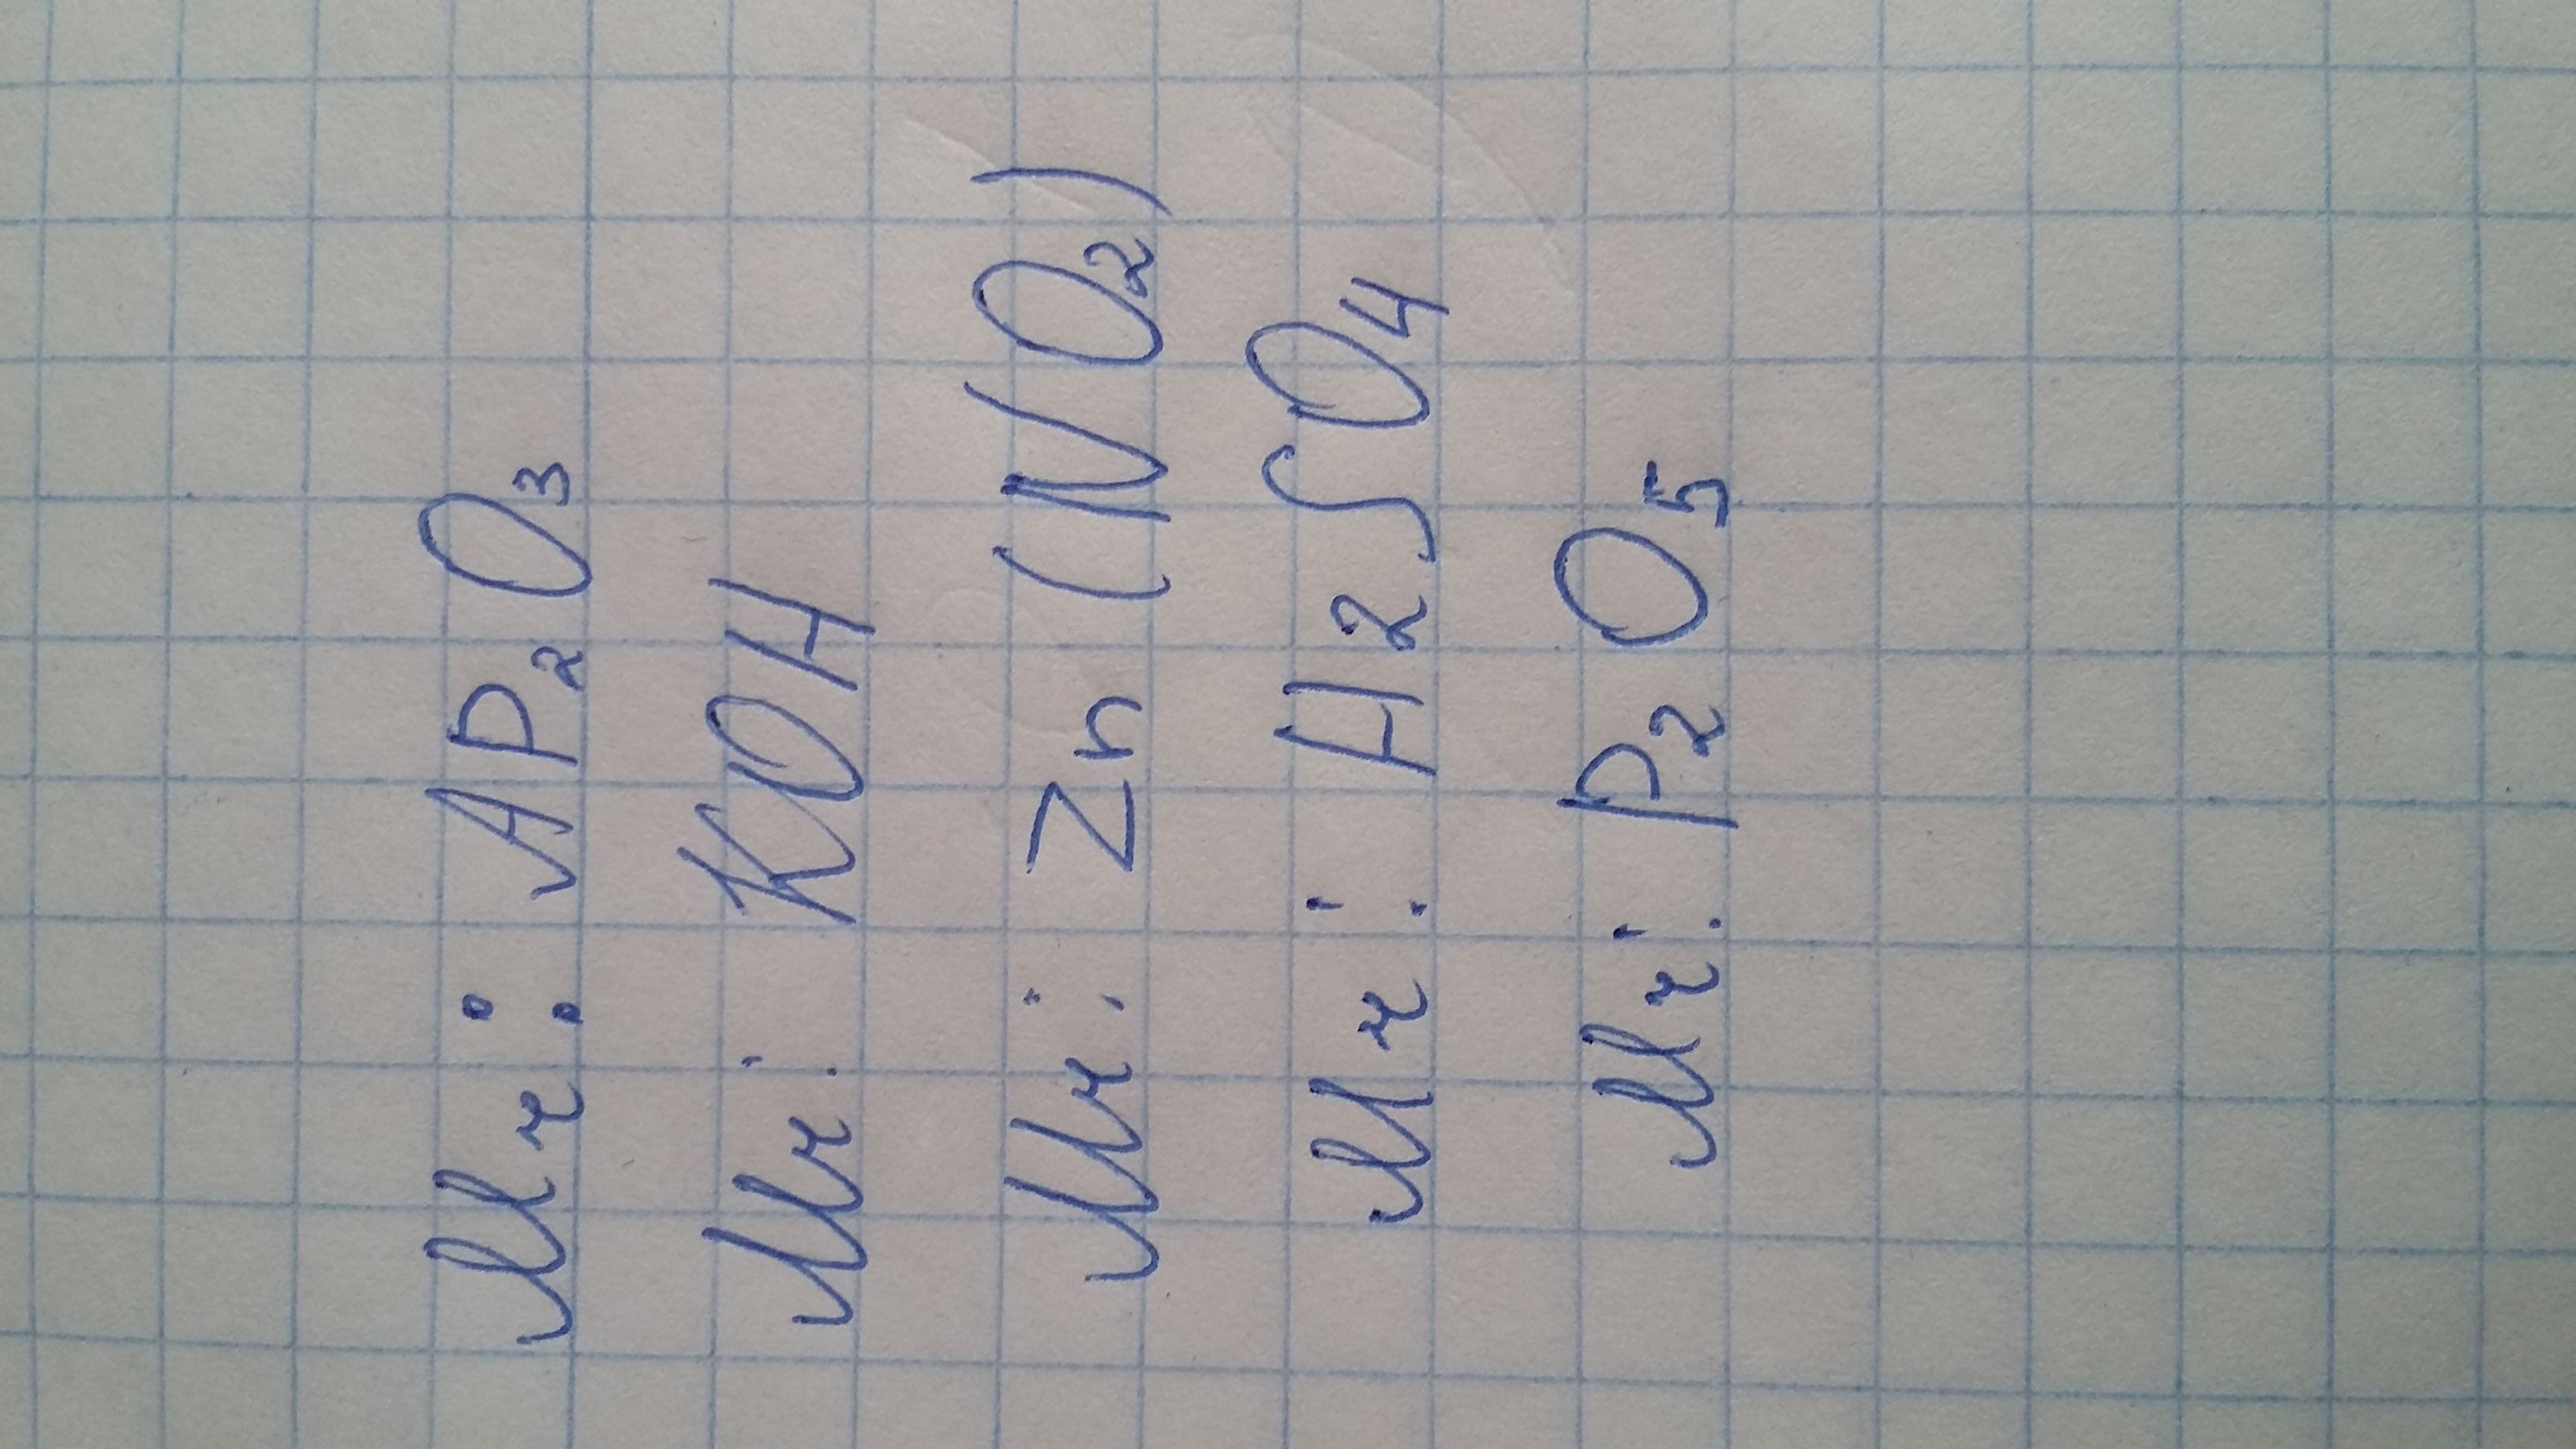 Mr: AP₂O₃
Mr: KOH
Mr: Zn(NO₂)
Mr: H₂SO₄
Mr: P₂O₅